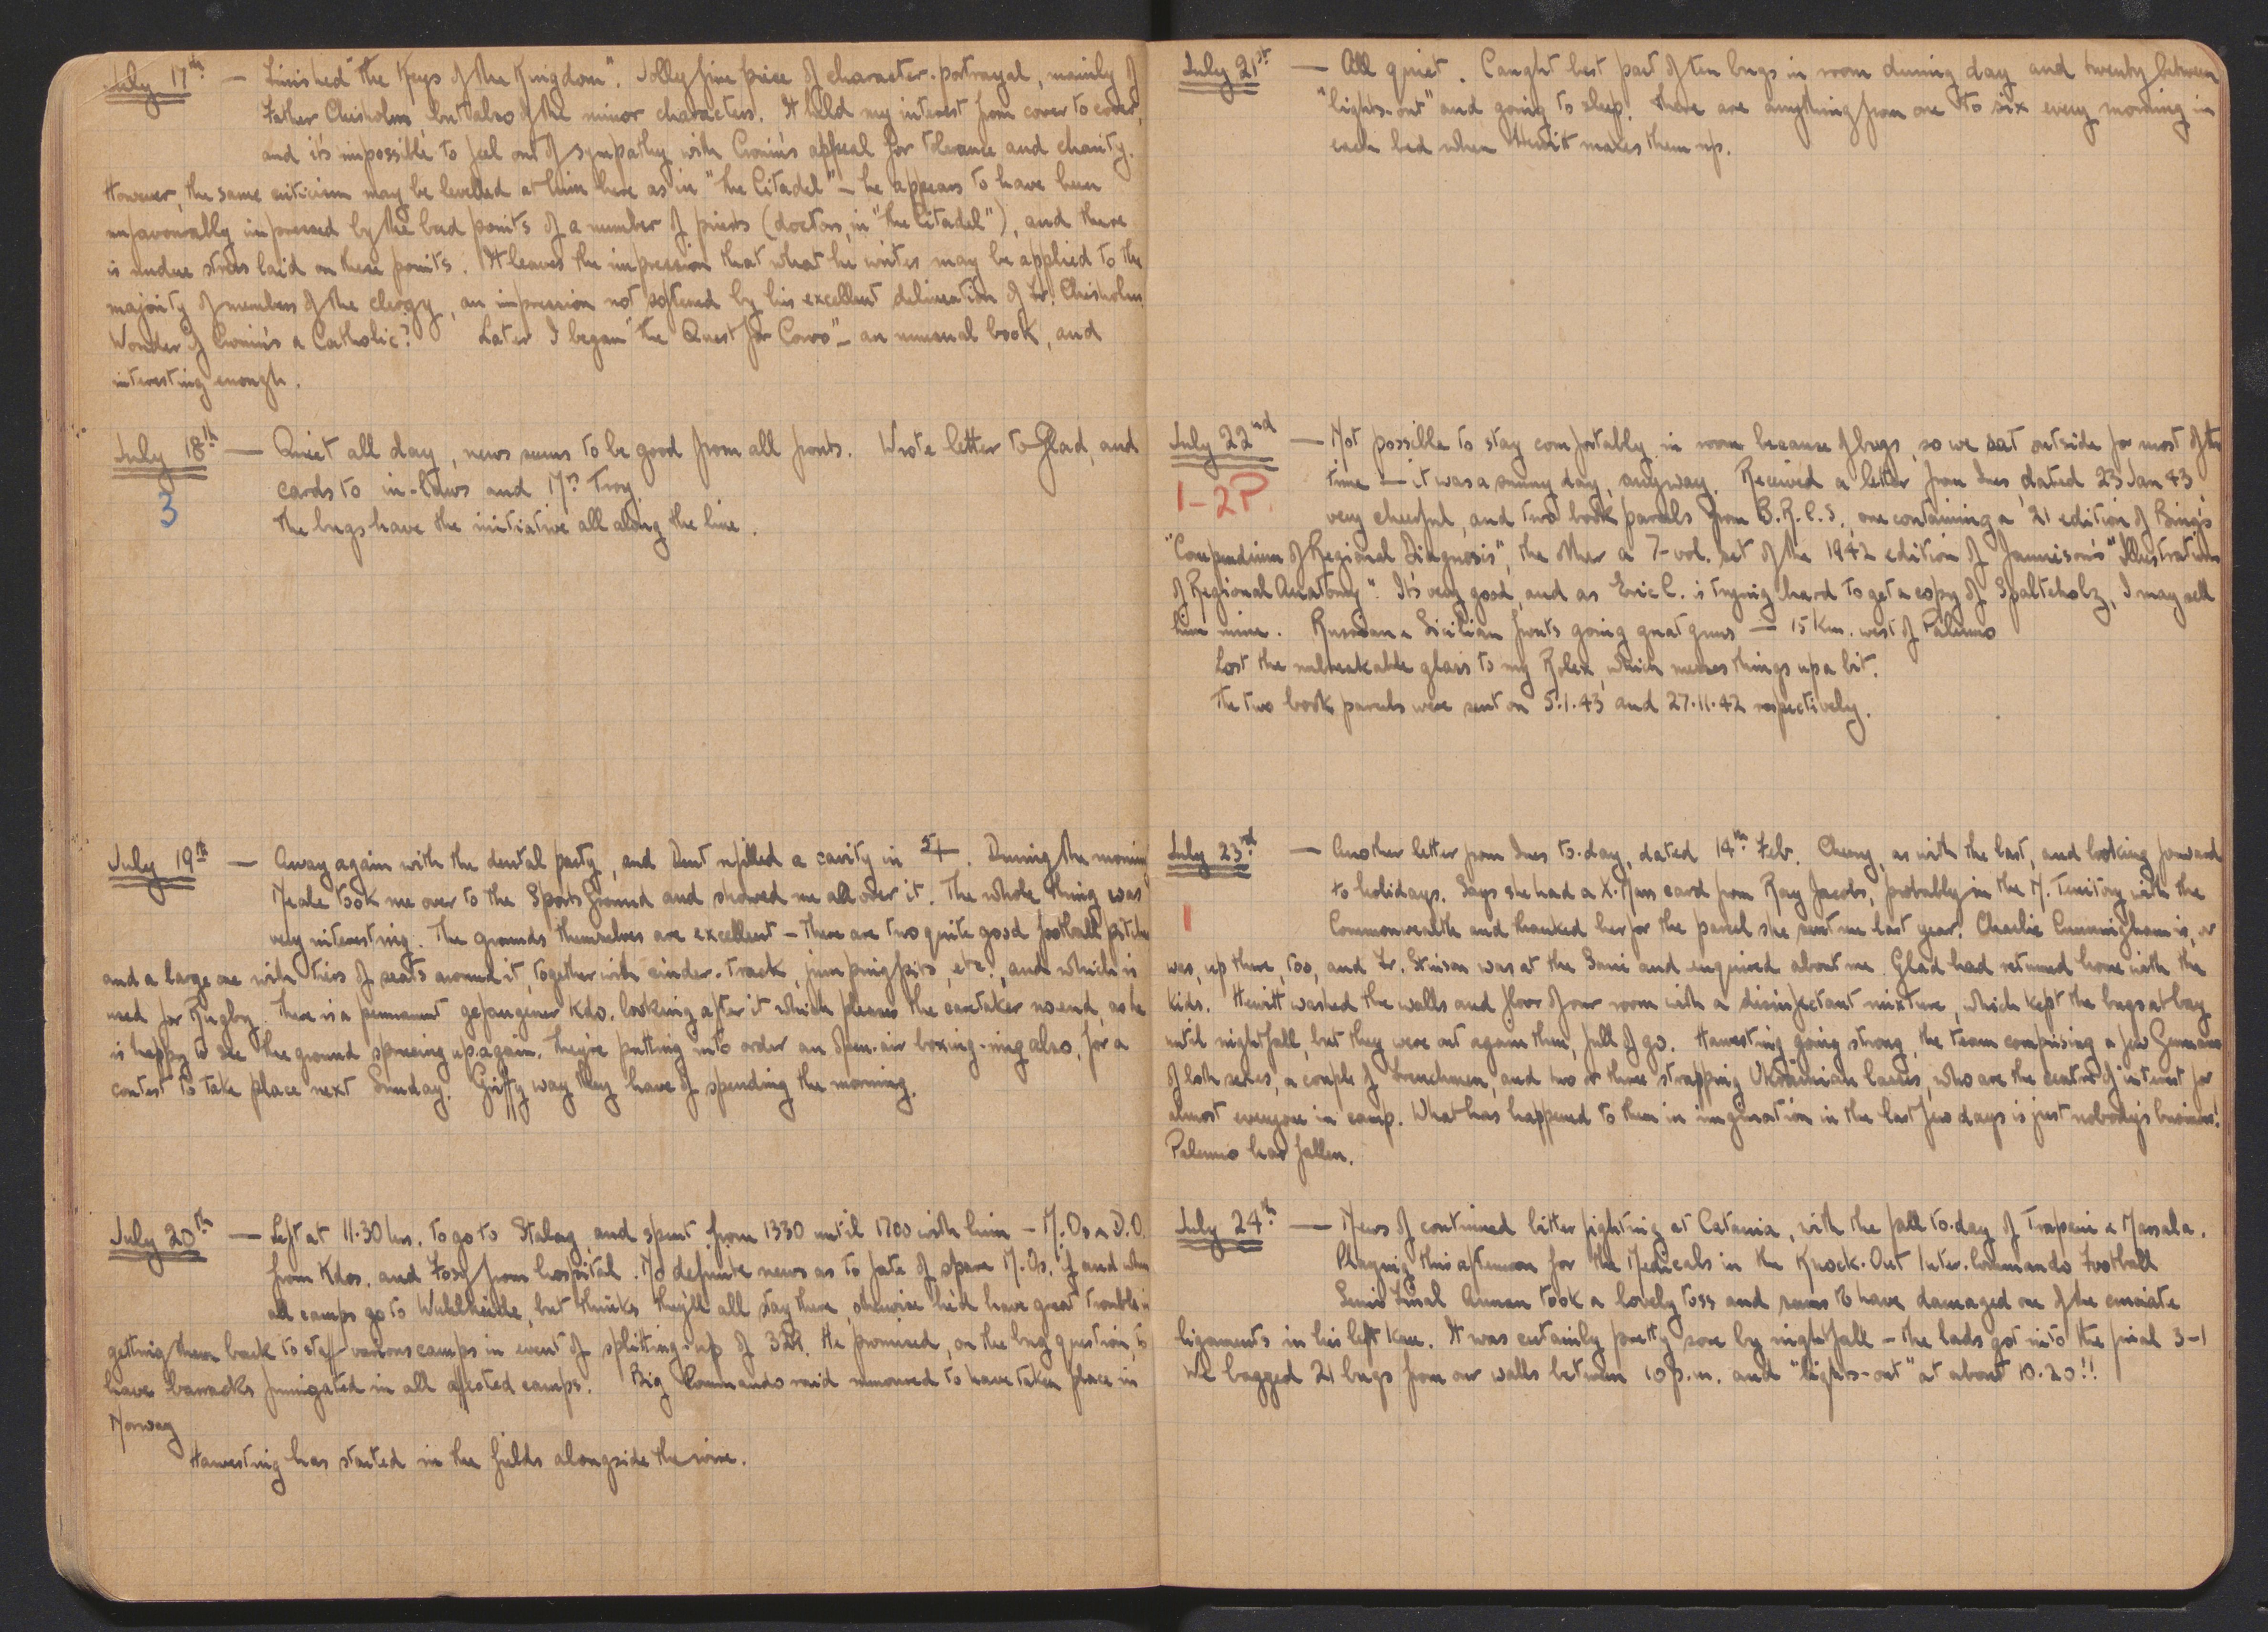 July 17th — Finished "The Keys of the Kingdom". Jolly fine piece of character-portrayal, mainly of
Father Chisholm, but also of the minor characters. It held my interest from cover to cover,
and it's impossible to feel out of sympathy with Cronin's appeal for tolerance and charity.
However, the same criticism may be levelled at him here as in "The Citadel" – he appears to have been
unfavourably impressed by the bad points of a number of priests (doctors, in "The Citadel"), and there
is undue stress laid on these points. It leaves the impression that what he writes may be applied to the
majority of members of the clergy, an impression not softened by his excellent delineation of Fr. Chisholm
Wonder if Cronin's a Catholic? Later I began "The Quest for Corvo" – an unusual book, and
interesting enough.
July 18th — Quiet all day, news seems to be good from all fronts. Wrote letter to Glad, and
cards to in-laws and Mrs Troy.
3
The bugs have the initiative all along the line.
July 19th — Away again with the dental party, and Dent refilled a cavity in 5+. During the morning
Neale took me over to the Sports ground and showed me all over it. The whole thing was
very interesting. The grounds themselves are excellent – there are two quite good football pitches
and a large one with tiers of seats around it, together with cinder-track, jumping pits, etc., and which is
used for Rugby. There is a permanent gefangener Kdo. looking after it which pleases the caretaker no end, as he
is happy to see the ground sprucing up again. They're putting into order an open-air boxing-ring also, for a
contest to take place next Sunday. Griffy way they have of spending the morning.
July 20th — Left at 11.30 hrs. to go to Stalag, and spent from 1330 until 1700 with him – M.Os & D.O.
from Kdos. and Foxy from hospital. No definite news as to fate of spare M.Os. if and when
all camps go to Wuhlheide, but thinks they'll all stay there, otherwise he'd have great trouble in
getting them back to staff various camps in event of splitting-up of 3D. He promised, on the bug question, to
have barracks fumigated in all affected camps. Big Commando raid rumoured to have taken place in
Norway
Harvesting has started in the fields alongside the wire.
July 21st — All quiet. Caught best part of ten bugs in room during day and twenty between
"lights-out" and going to sleep. There are anything from one to six every morning in
each bed when Hewitt makes them up.
July 22nd — Not possible to stay comfortably in room because of bugs, so we sat outside for most of the
time – it was a sunny day, anyway. Received a letter from Ines dated 23 Jan 43
1-2P.
very cheerful, and two book parcels from B.R.C.S., one containing a '21 edition of Bing's
"Compendium of Regional Diagnosis", the other a 7-vol. set of the 1942 edition of Jamieson's "Illustrations
of Regional Anatomy". It's very good, and as Eric C. is trying hard to get a copy of Spalteholz, I may sell
him mine. Russian & Sicilian fronts going great guns – 15 Km. west of Palermo
Lost the unbreakable glass to my Rolex, which messes things up a bit.
The two book parcels were sent on 5.1.43 and 27.11.42 respectively.
July 23rd — Another letter from Ines to-day, dated 14th Feb. Cheery, as with the last, and looking forward
to holidays. Says she had a X-Mas card from Ray Jacobs, probably in the N. Territory with the
1
Commonwealth and thanked her for the parcel she sent me last year. Charlie Cunningham is, or
was, up there, too, and Fr. Stinson was at the Sani and enquired about me. Glad had returned home with the
kids. Hewitt washed the walls and floor of our room with a disinfectant mixture, which kept the bugs at bay
until nightfall, but they were out again then, full of go. Harvesting going strong, the team comprising a few Germans
of both sexes, a couple of Frenchmen, and two or three strapping Ukrainian lasses, who are the centre of interest for
almost everyone in camp. What has happened to them in imagination in the last few days is just nobody's business!
Palermo has fallen.
July 24th — News of continued bitter fighting at Catania, with the fall to-day of Trapani & Marsala.
Playing this afternoon for the Medicals in the Knock-Out Inter-Commando Football
Semi-Final Annan took a lovely toss and seems to have damaged one of the cruciate
ligaments in his left knee. It was certainly pretty sore by nightfall – the lads got into the final 3-1
We bagged 21 bugs from our walls between 10 p.m. and "lights-out" at about 10.20!!